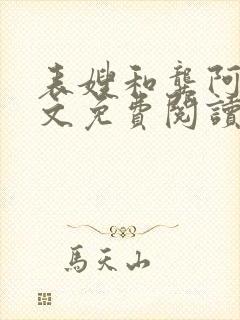 表嫂和龔阿
文免費閱讀
馬天山